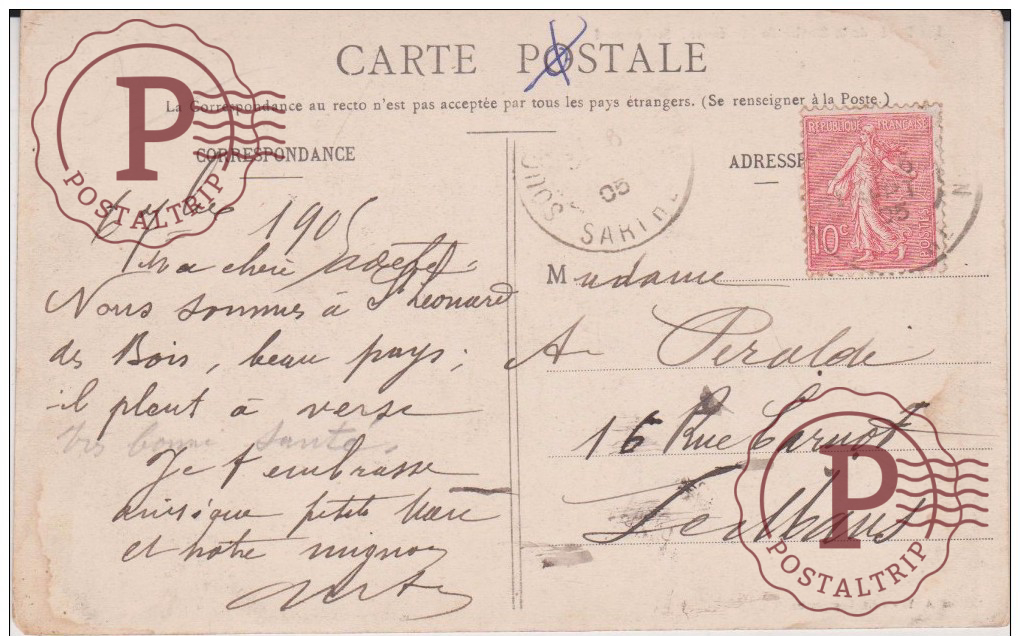 CARTE POSTALE
La Correspondance au recto n'est pas acceptée par tous les pays étrangers. (Se renseigner à la Poste.)
CORRESPONDANCE
ADRESSE
RÉPUBLIQUE FRANÇAISE
10c
POSTES
05
SOUGÉ
SARTHE
1905
Ma chère
Nous sommes à St Léonard
des Bois, beau pays,
il pleut à verse
très bonne santé
Je t'embrasse
ainsi que petite
et notre mignon
Madame
A Peraldi
16 Rue Carnot
P
POSTALTRIP
P
POSTALTRIP